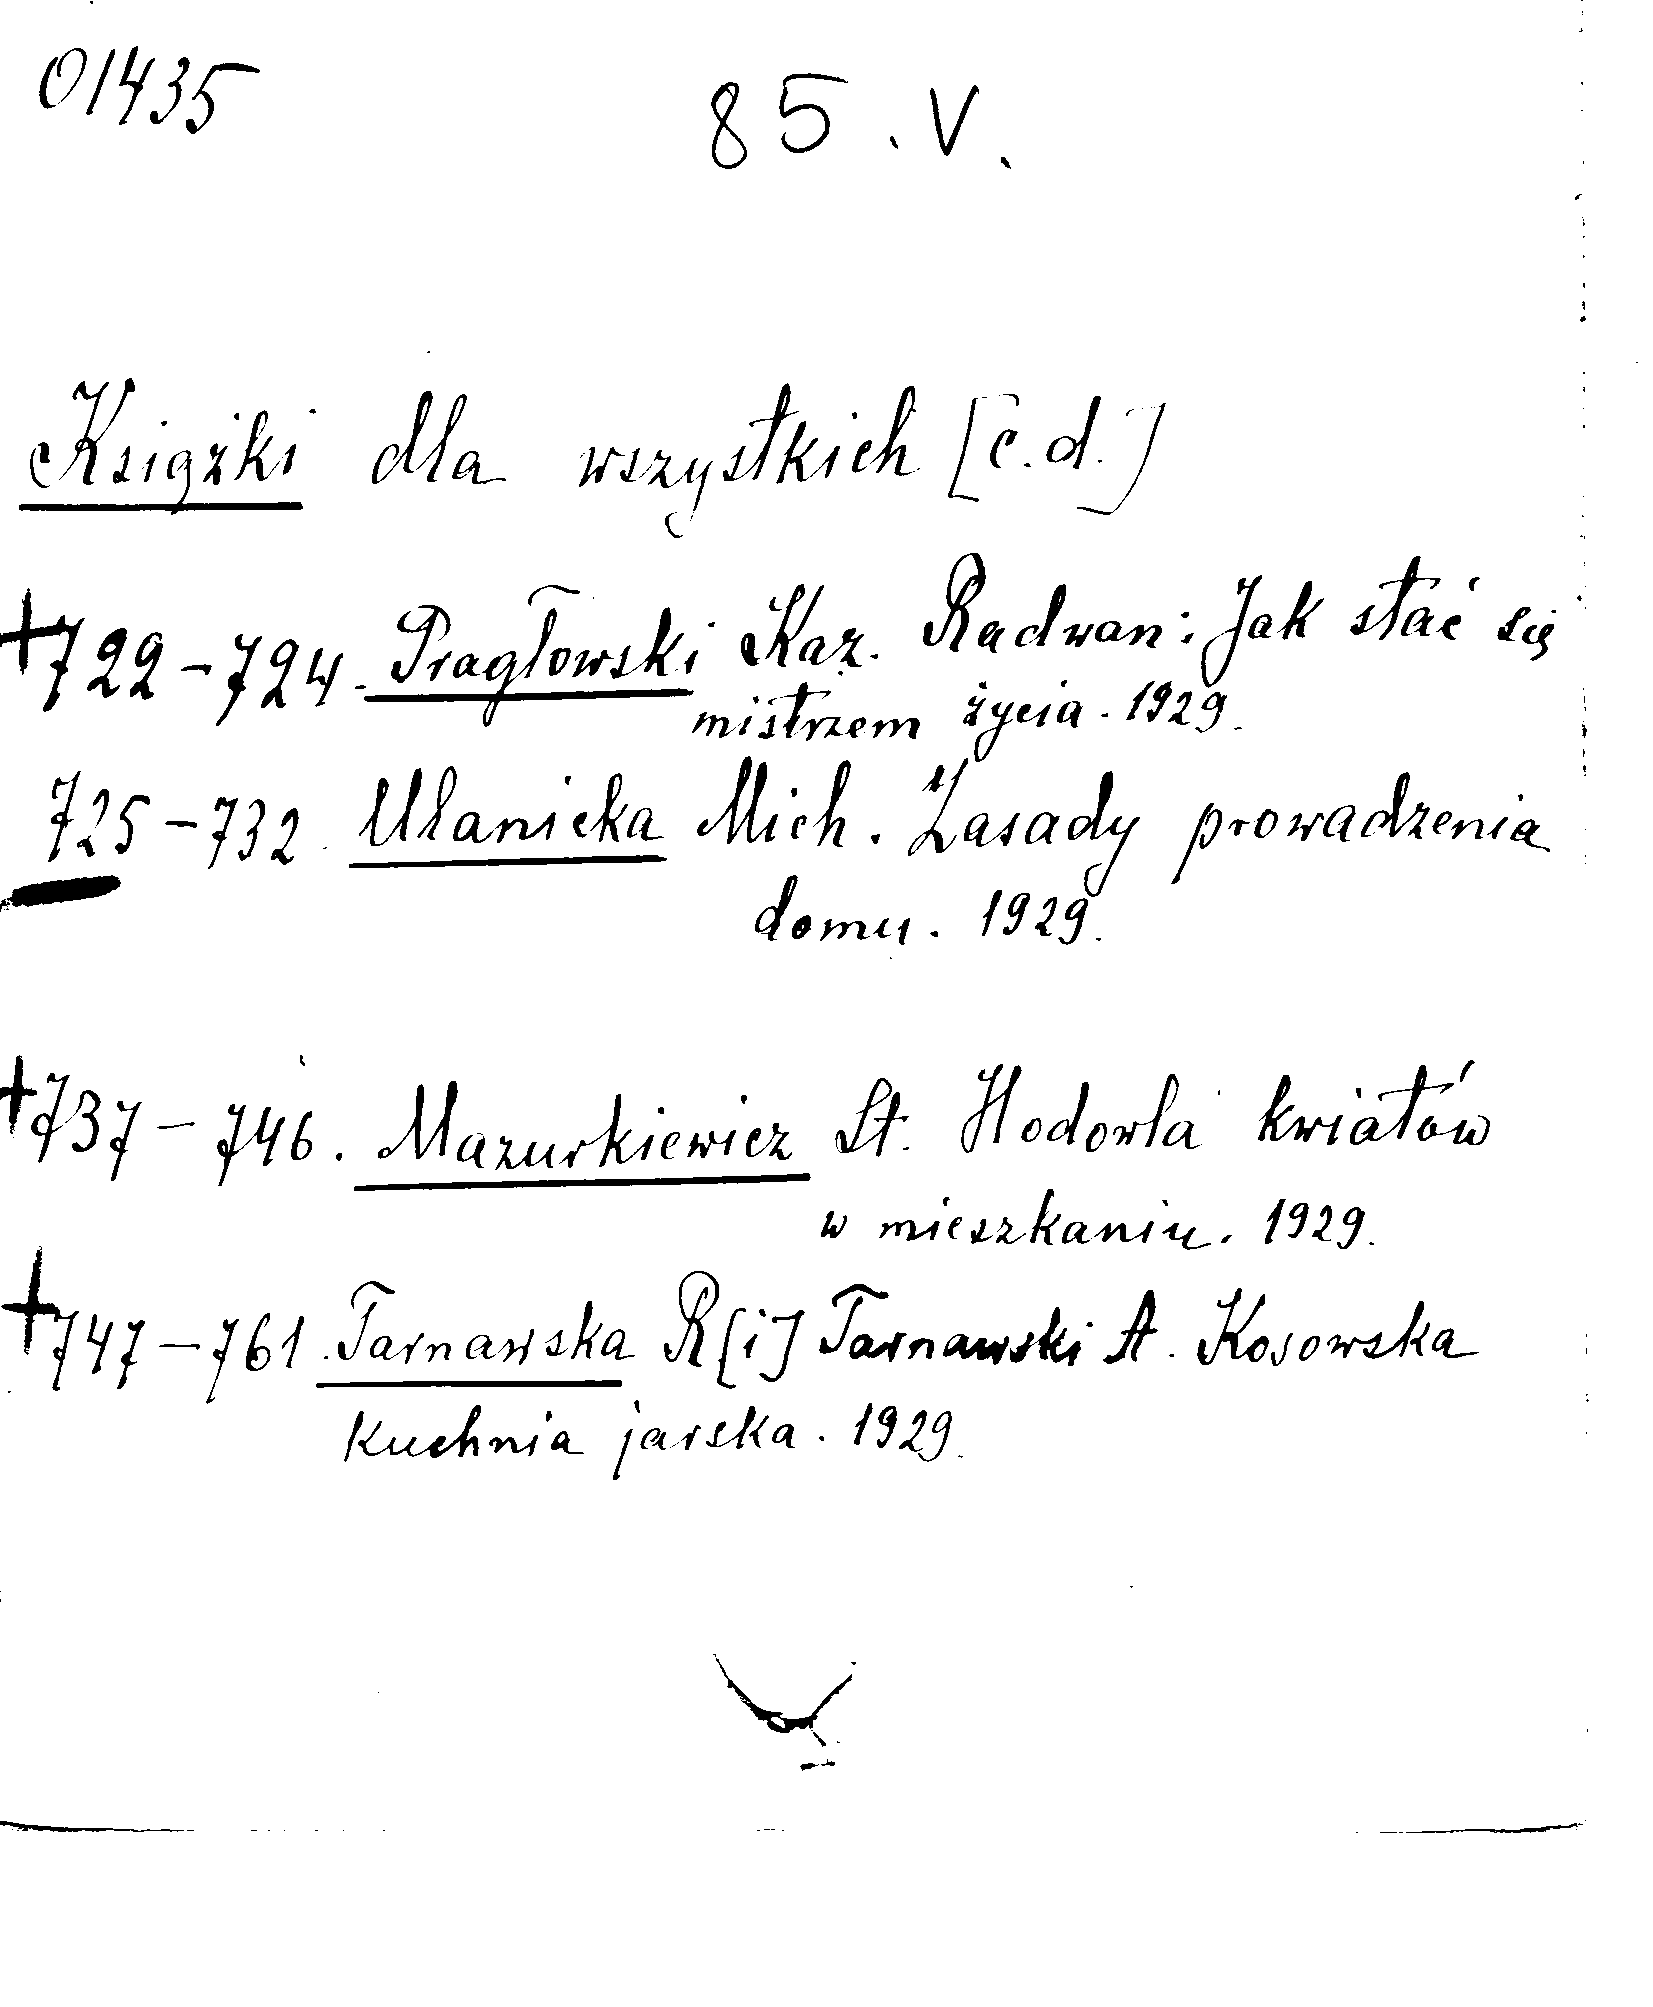 01435
85.V.
Książki dla wszystkich [c.d.]
+722-724. Pragłowski Kaz. Radwan: Jak stać się
mistrzem życia. 1929.
725-732. Ulanicka Mich. Zasady prowadzenia
domu. 1929.
+737-746. Mazurkiewicz St. Hodowla kwiatów
w mieszkaniu. 1929.
+747-761. Tarnawska R[i] Tarnawski A. Kosowska
kuchnia jarska. 1929.